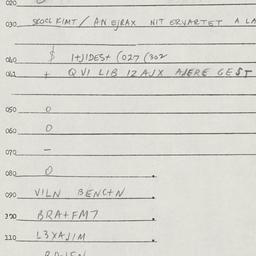 020
030 SKOCL KIMT / AN EJRAX NIT ERVARTET A LA
060 $ I+JIDES+ (027 (302
061 + QVI LIB IZ AJX AJERE GEST
050 O
060 O
070 –
080 O
090 VILN BENC+N
100 BRA+FM7
110 L3XAJIM